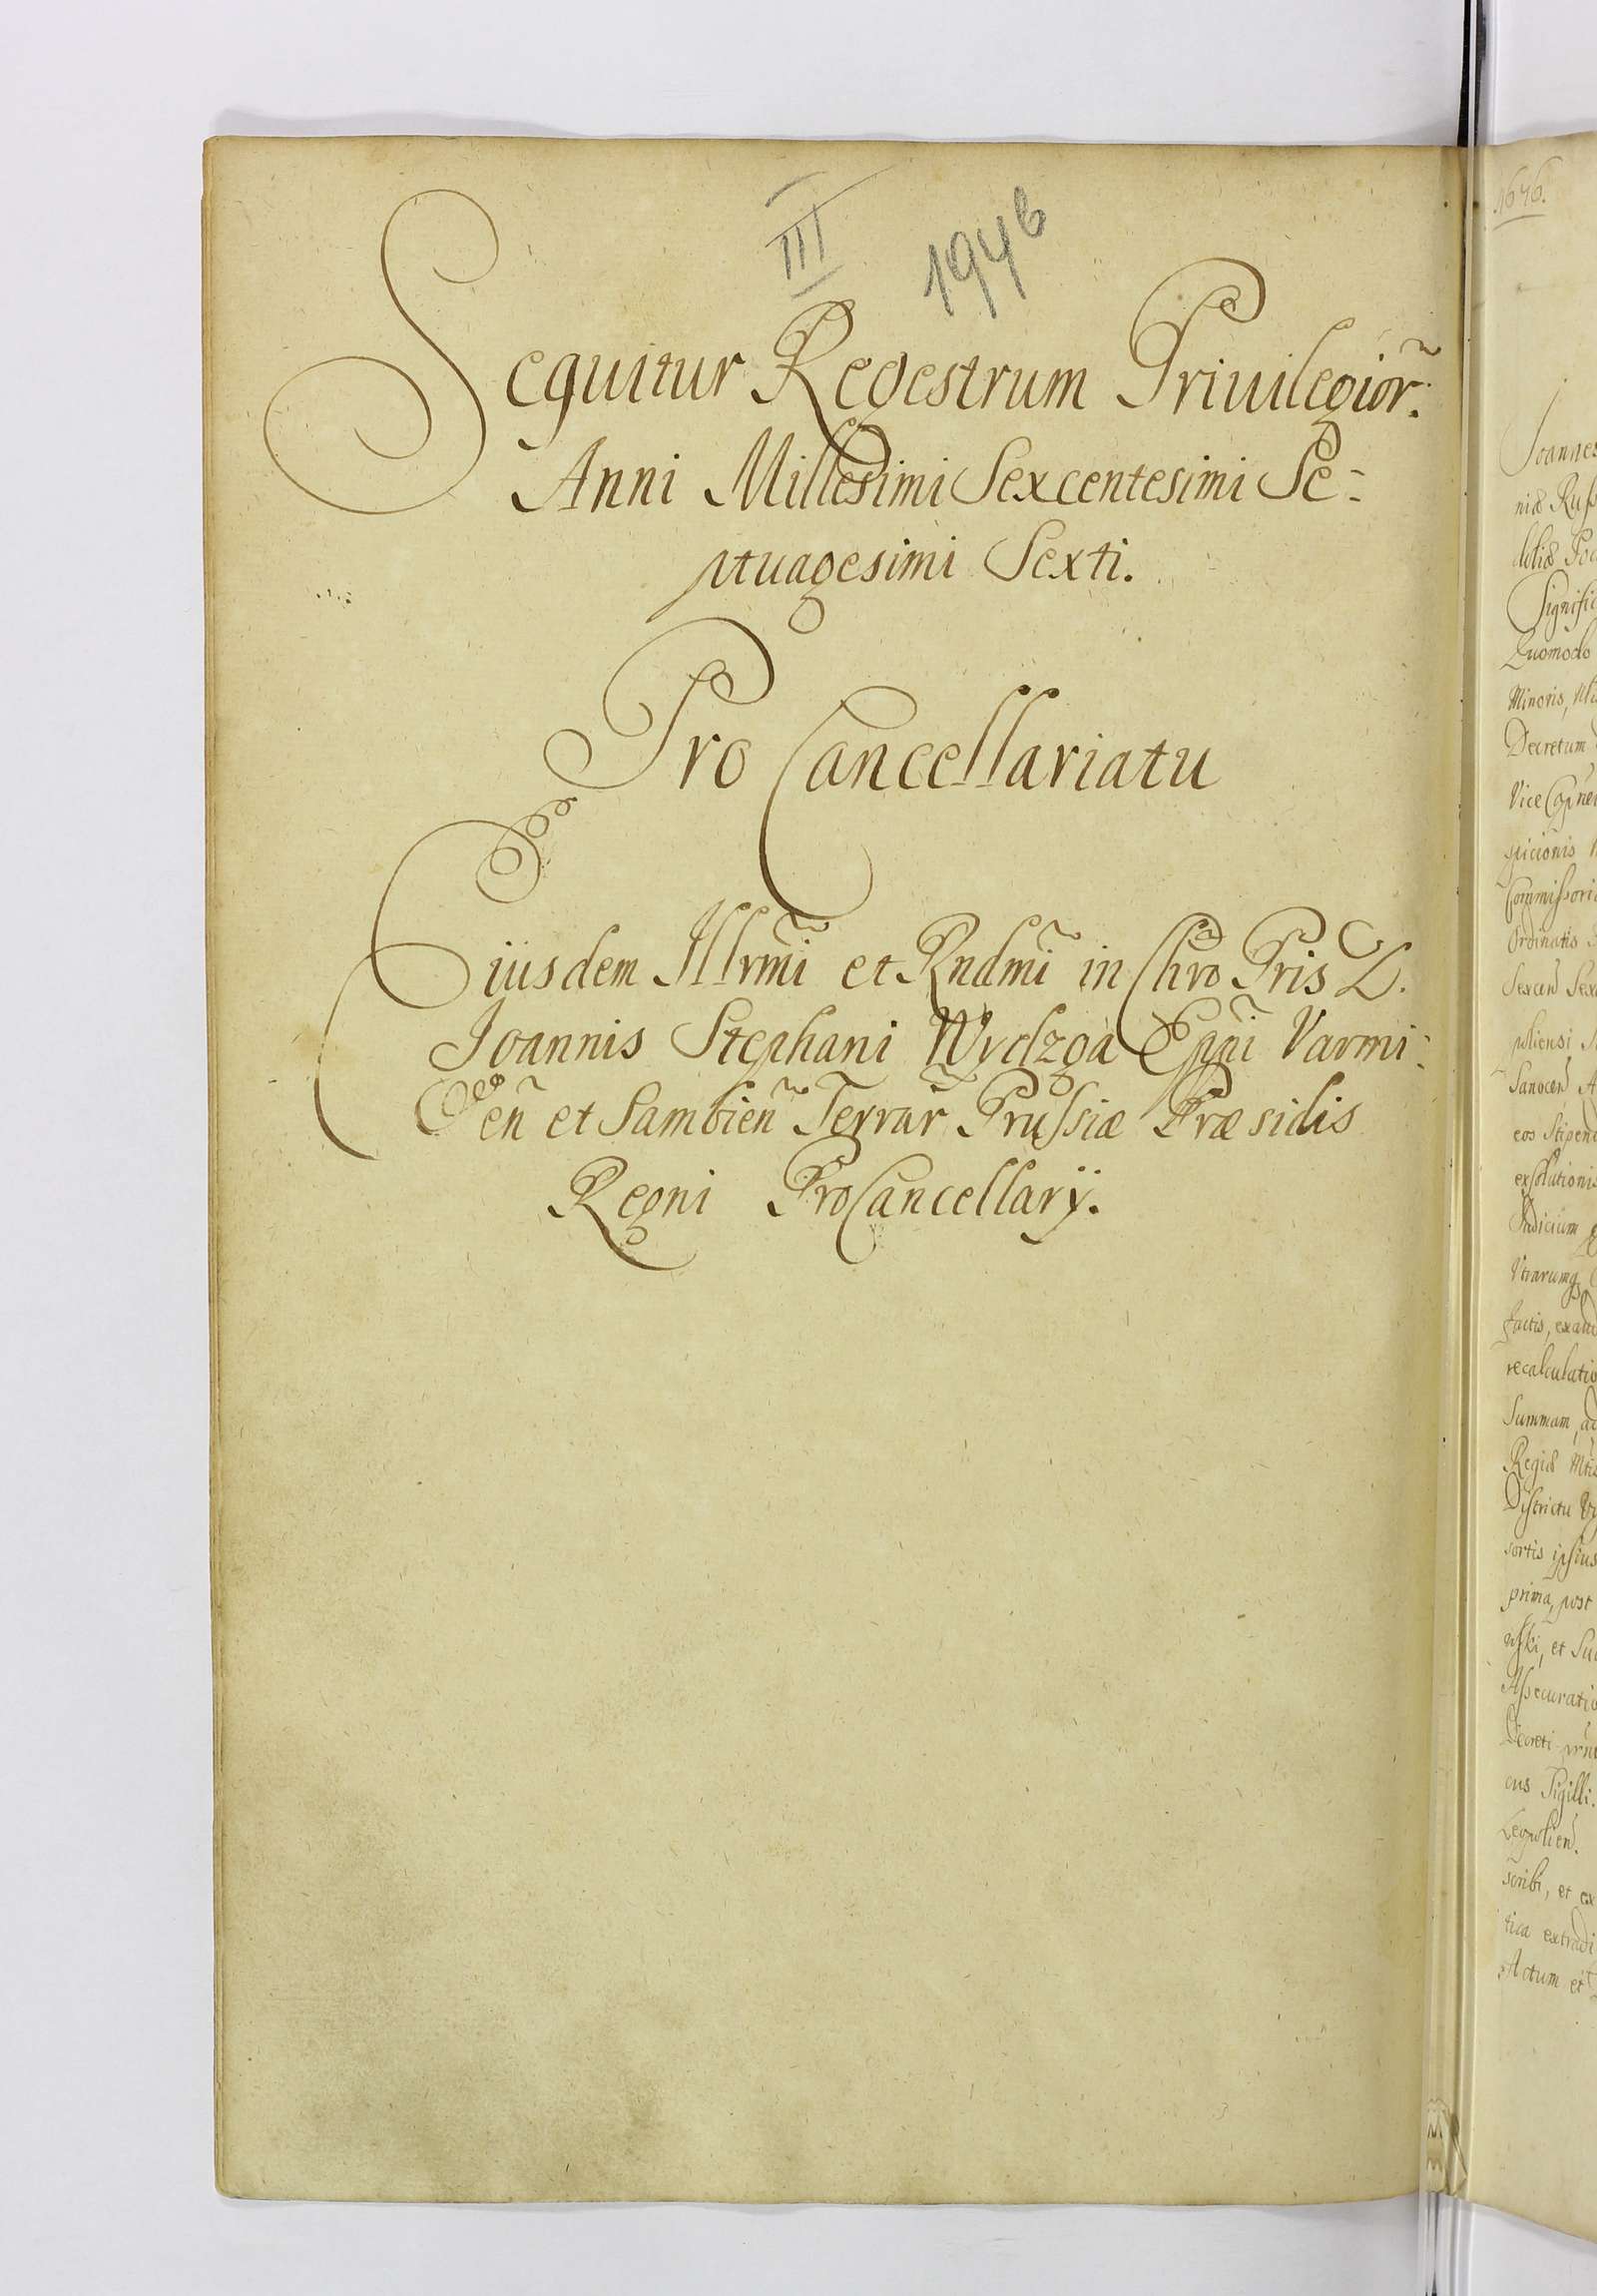 III 1946
Sequitur Regestrum Priuilegior̃.
Anni Millesimi Sexcentesimi Se-
ptuagesimi Sexti.
Pro Cancellariatu
Eiusdem Illrm̃i et Rndm̃i in Chr̃o Pris D.
Joannis Stephani Wydzga Epp̃i Varmi-
eñ et Sambieñ Terrar̃ Prussiæ Præsidis
Regni ProCancellarÿ.
1676.
Joannes
niæ Russ
doliæ
Signific
Quomodo
Minoris,
Decretum
Vice
Commissori
Ordinatis
eos Stipend
exolutionis
Judicium
factis,
recalculatio
Summam,
Regiæ
Districtu
sortis ipsius
prima, post
Assecuratio
Decreti
ous Sigilli.
Leopolien.
scribi, et ex
tica extradi
Actum et